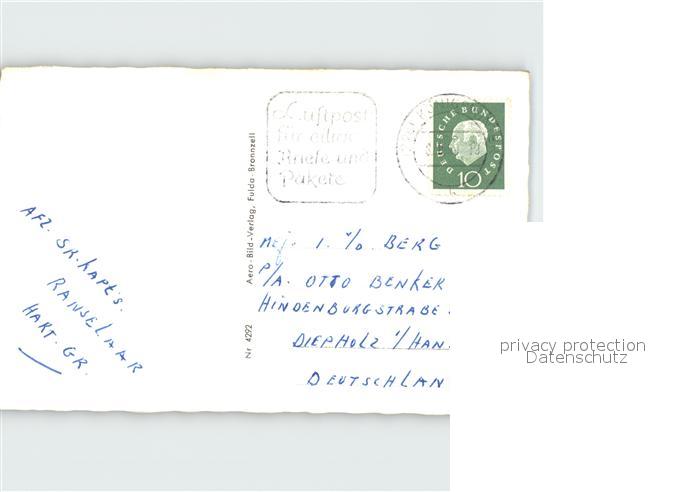 Luftpost
für eilige
Briefe und
Pakete
DEUTSCHE BUNDESPOST
10
Aero-Bild-Verlag, Fulda-Bronnzell
Nr 4292
AFZ. SR. KAPT'S.
RANSELAAR
HART. GR.
MEJ. I. v/D. BERG
P/A. OTTO BENKER
HINDENBURGSTRABE.
DIEPHOLZ I/HAN.
DEUTSCHLAN
privacy protection
Datenschutz